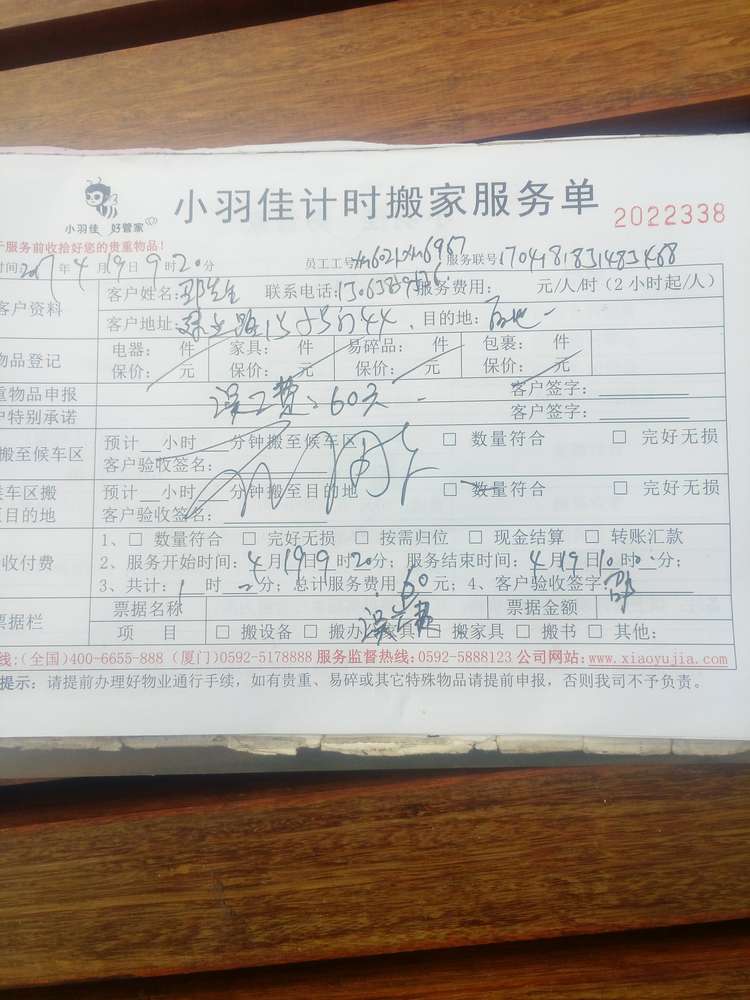 小羽佳计时搬家服务单
小羽佳 好管家
2022338
服务前收拾好您的贵重物品!
时间:2017年4月19日9时20分 员工工号 服务联号:
客户资料 客户姓名: 先生 联系电话: 服务费用: 元/人/时(2小时起/人)
客户地址: 目的地:
物品登记 电器: 件 家具: 件 易碎品: 件 包裹: 件
保价: 元 保价: 元 保价: 元 保价: 元
重物品申报 误工费:60元 客户签字:
户特别承诺 客户签字:
搬至候车区 预计__小时__分钟搬至候车区 □ 数量符合 □ 完好无损
客户验收签名:
车区搬 预计__小时__分钟搬至目的地 □ 数量符合 □ 完好无损
目的地 客户验收签名:
收付费 1、□ 数量符合 □ 完好无损 □ 按需归位 □ 现金结算 □ 转账汇款
2、服务开始时间:4月19日9时20分;服务结束时间:4月19日10时 分;
3、共计:1时 分;总计服务费用:60元;4、客户验收签字:
票据栏 票据名称 票据金额
项 目 □ 搬设备 □ 搬办 具 □ 搬家具 □ 搬书 □ 其他:
误工费
线:(全国)400-6655-888 (厦门)0592-5178888 服务监督热线:0592-5888123 公司网站:www.xiaoyujia.com
提示:请提前办理好物业通行手续,如有贵重、易碎或其它特殊物品请提前申报,否则我司不予负责。